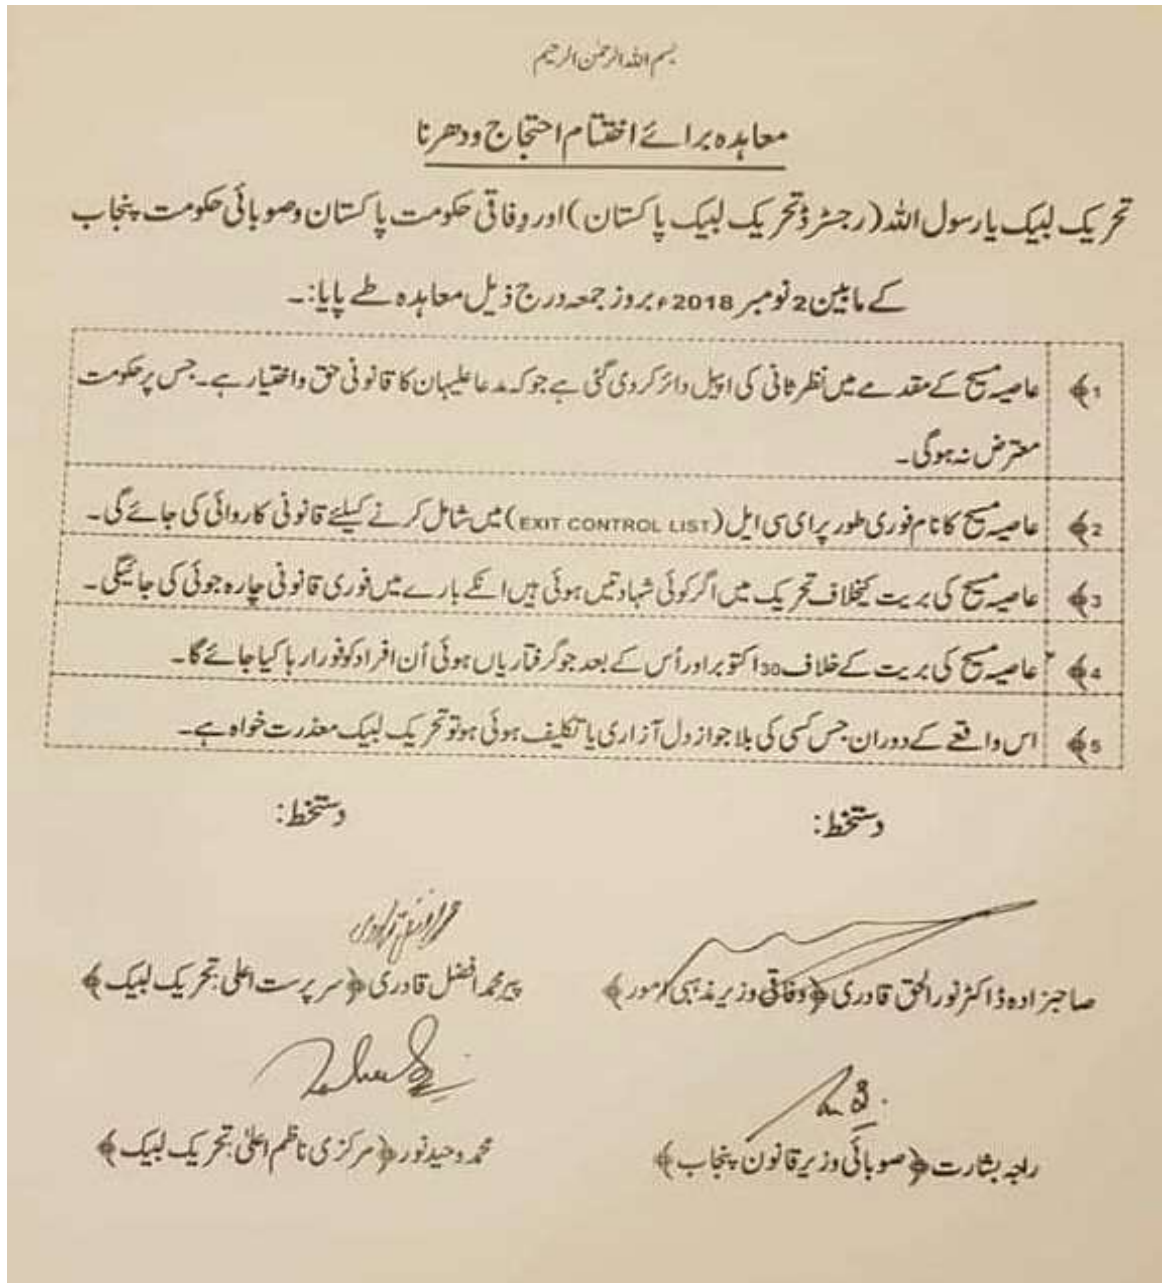 بسم اللہ الرحمٰن الرحیم
معاہدہ برائے اختتام احتجاج ودھرنا
تحریک لبیک یارسول اللہ (رجسٹرڈ تحریک لبیک پاکستان) اور وفاقی حکومت پاکستان وصوبائی حکومت پنجاب
کے مابین 2 نومبر 2018ء بروز جمعہ درج ذیل معاہدہ طے پایا:۔
1﴾ عاصیہ مسیح کے مقدمے میں نظرثانی کی اپیل دائر کردی گئی ہے جو کہ مدعا علیہان کا قانونی حق واختیار ہے۔ جس پر حکومت
معترض نہ ہوگی۔
2﴾ عاصیہ مسیح کا نام فوری طور پر ای سی ایل (EXIT CONTROL LIST) میں شامل کرنے کیلئے قانونی کاروائی کی جائے گی۔
3﴾ عاصیہ مسیح کی بریت کیخلاف تحریک میں اگر کوئی شہادتیں ہوئی ہیں انکے بارے میں فوری قانونی چارہ جوئی کی جائیگی۔
4﴾ عاصیہ مسیح کی بریت کے خلاف 30 اکتوبر اور اُس کے بعد جو گرفتاریاں ہوئی اُن افراد کو فورا رہا کیا جائے گا۔
5﴾ اس واقعے کے دوران جس کسی کی بلا جواز دل آزاری یا تکلیف ہوئی ہو تو تحریک لبیک معذرت خواہ ہے۔
دستخط: دستخط:
صاحبزادہ ڈاکٹر نورالحق قادری ﴿وفاقی وزیر مذہبی امور﴾ پیر محمد افضل قادری ﴿سرپرست اعلی تحریک لبیک﴾
راجہ بشارت ﴿صوبائی وزیر قانون پنجاب﴾ محمد وحید نور ﴿مرکزی ناظم اعلیٰ تحریک لبیک﴾